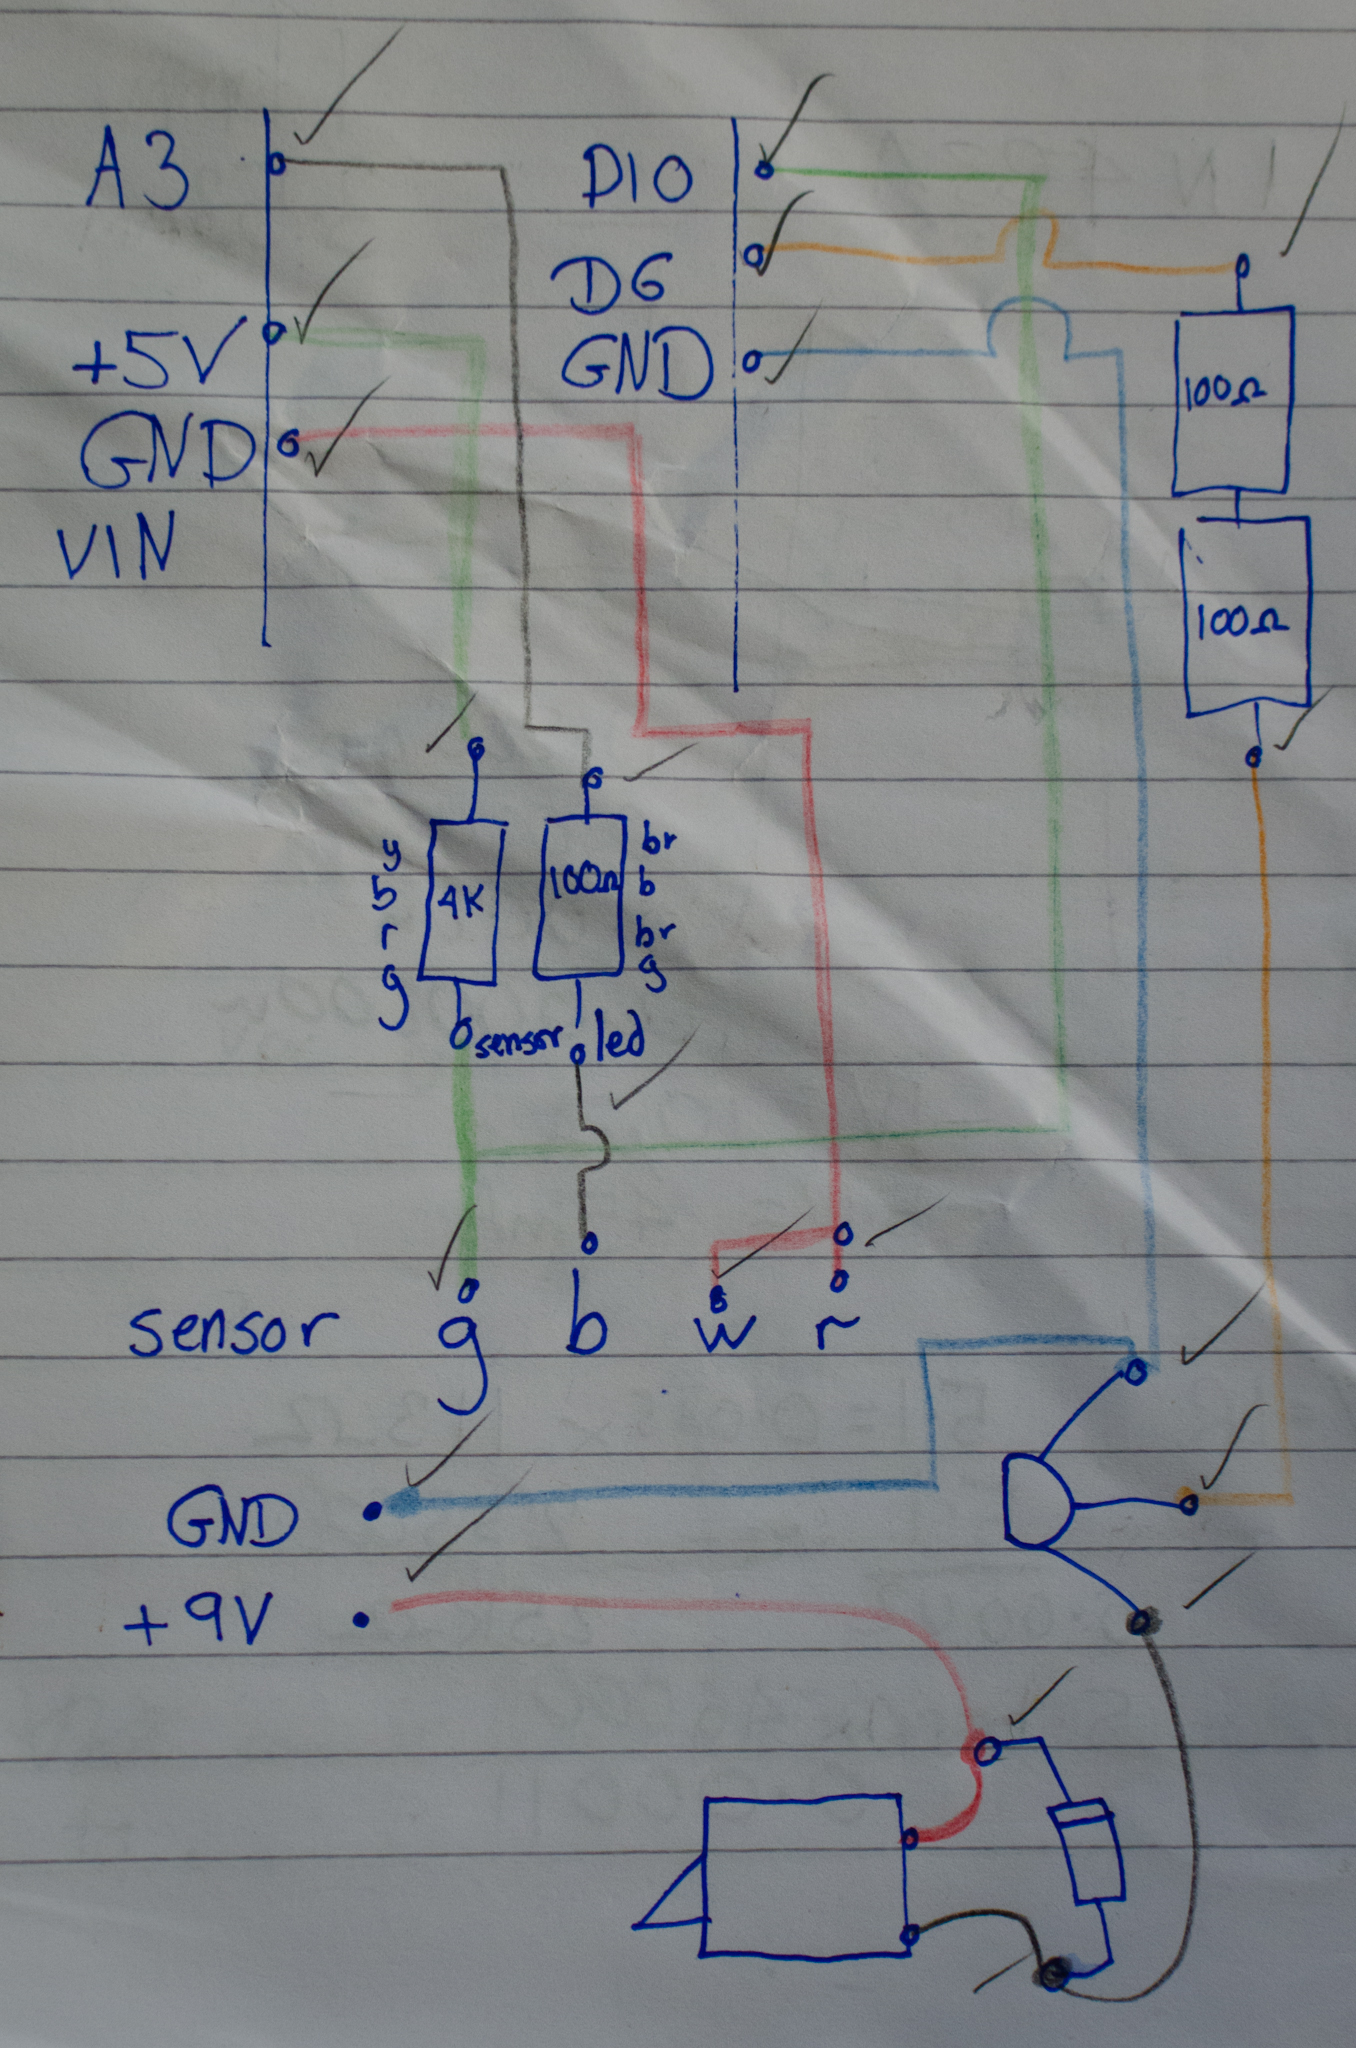 A3
+5V
GND
VIN
D10
D6
GND
100Ω
100Ω
y
b
r
g
4K
100Ω
br
b
br
g
sensor
led
sensor g b w r
GND
+9V